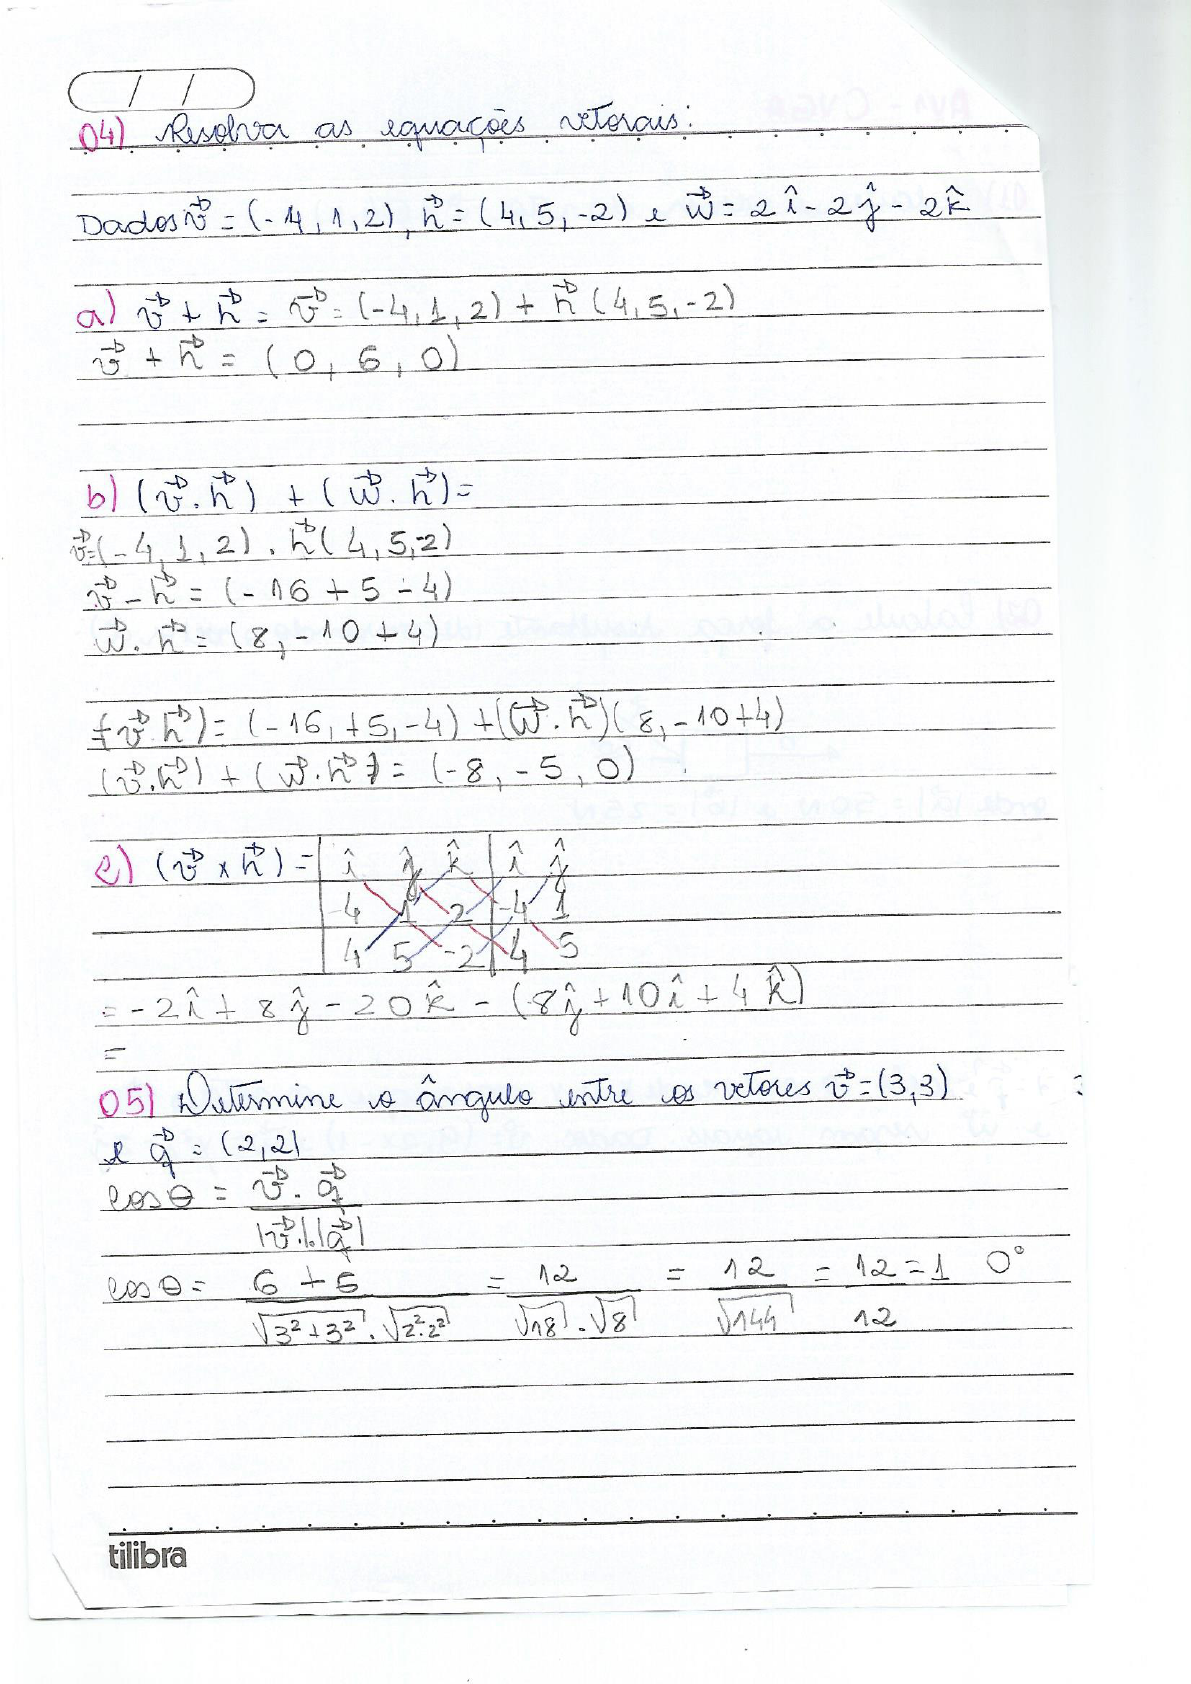 / /
04) Resolva as equações vetorais:
Dados v⃗ = (-4, 1, 2), h⃗ = (4, 5, -2) e w⃗ = 2î - 2ĵ - 2k̂
a) v⃗ + h⃗ = v⃗ = (-4, 1, 2) + h⃗ (4, 5, -2)
v⃗ + h⃗ = (0, 6, 0)
b) (v⃗ . h⃗) + (w⃗ . h⃗) =
v⃗ = (-4, 1, 2) . h⃗ (4, 5, -2)
v⃗ - h⃗ = (-16 + 5 - 4)
w⃗ . h⃗ = (8, -10 + 4)
(v⃗ . h⃗) = (-16, +5, -4) + (w⃗ . h⃗) (8, -10 + 4)
(v⃗ . h⃗) + (w⃗ . h⃗) = (-8, -5, 0)
c) (v⃗ x h⃗) = | î ĵ k̂ | î ĵ
4 1 2 | -4 1
4 5 -2 | 4 5
= -2î + 8ĵ - 20k̂ - (-8ĵ + 10î + 4k̂)
=
05) Determine o ângulo entre os vetores v⃗ = (3, 3)
e q⃗ = (2, 2)
cos θ = v⃗ . q⃗
|v⃗| . |q⃗|
cos θ = 6 + 6 = 12 = 12 = 12 = 1 0°
√3² + 3² . √2² . 2² √18 . √8 √144 12
tilibra